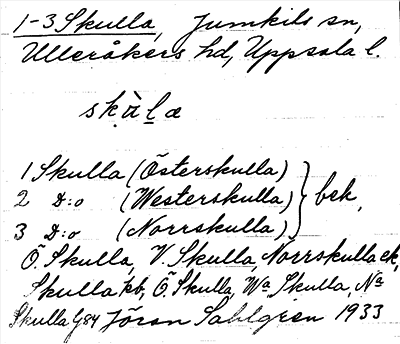 1-3 Skulla, Jumkils sn,
Ulleråkers hd, Uppsala l.
skàlа
1 Skulla (Österskulla)
2 D:o (Westerskulla) } bek,
3 D:o (Norrskulla)
Ö. Skulla, V. Skulla, Norrskulla ek,
Skulla kb, Ö. Skulla, Wa Skulla, Na
Skulla G84 Jöran Sahlgren 1933